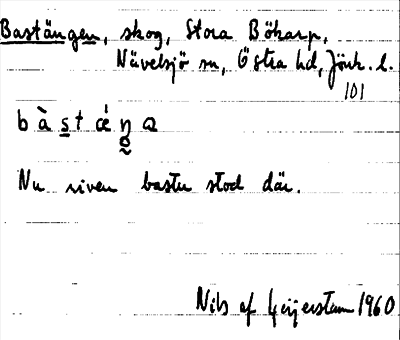 Bastängen, skog, Stora Bökarp,
Nävelsjö sn, Östra hd, Jönk. l.
101
b à s t ǽ ŋ a
Nu riven bastu stod där.
Nils af Geijerstam 1960